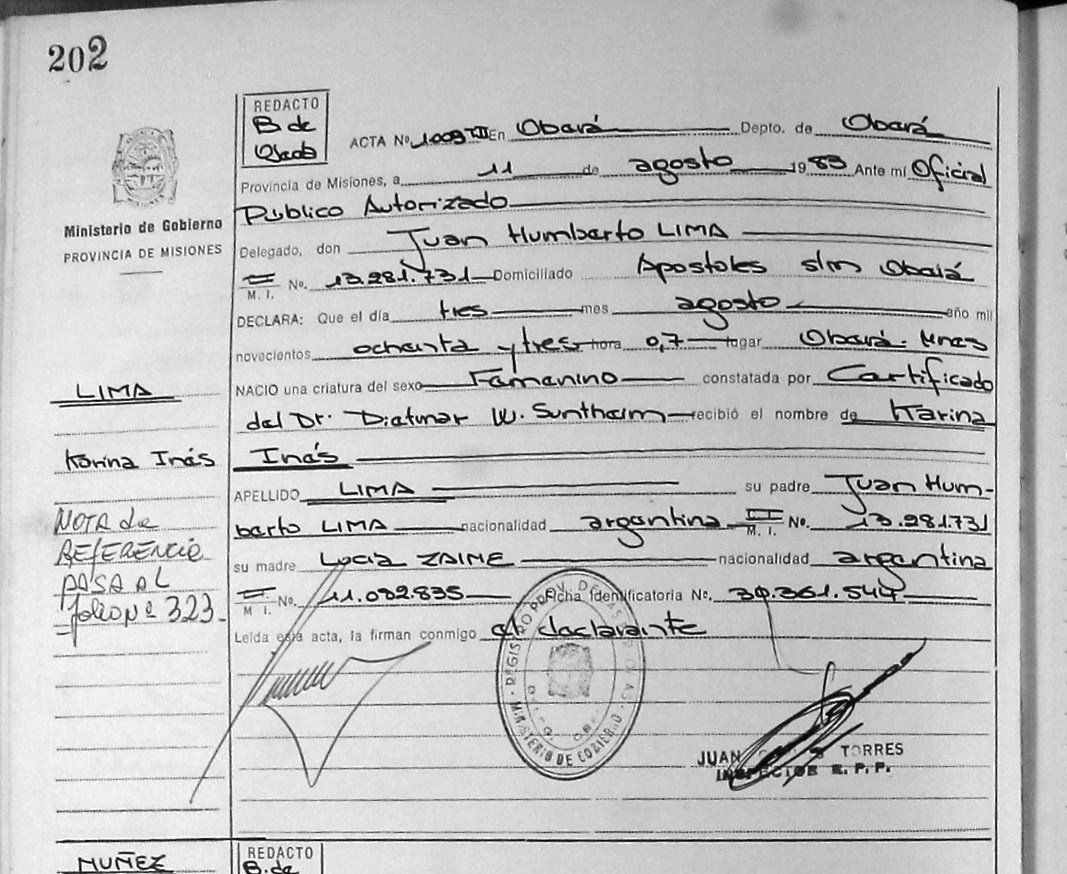 202
REDACTO
B de
ACTA No. 1009 En Oberá Depto. de Oberá
Provincia de Misiones, a 11 de agosto 1983 Ante mí Oficial
Público Autorizado
Ministerio de Gobierno
PROVINCIA DE MISIONES
Delegado, don Juan Humberto LIMA
M. I. No. 13.281.731 Domiciliado Apostoles s/n Oberá
DECLARA: Que el día tres mes agosto año mil
novecientos ochenta y tres hora 0,7 lugar Oberá. Mnes
LIMA
NACIO una criatura del sexo Femenino constatada por Certificado
del Dr. Dietmar W. Suntheim recibió el nombre de Karina
Karina Inés
Inés
APELLIDO LIMA su padre Juan Hum-
berto LIMA nacionalidad argentina M. I. No. 13.281731
NOTA de
REFERENCIA
PASA AL
folio nº 323
su madre Lucia ZAIME nacionalidad argentina
M. I. No. 11.032.835 Ficha Identificatoria No. 30.361.544
Leída esta acta, la firman conmigo el declarante
REGISTRO PROV. DE LAS PERSONAS
MINISTERIO DE GOBIERNO
JUAN TORRES
INSPECTOR R. P. P.
MUÑEZ
REDACTO
B. de